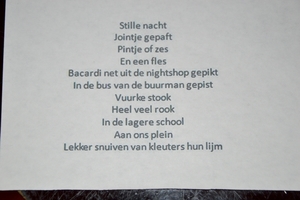 Stille nacht
Jointje gepaft
Pintje of zes
En een fles
Bacardi net uit de nightshop gepikt
In de bus van de buurman gepist
Vuurke stook
Heel veel rook
In de lagere school
Aan ons plein
Lekker snuiven van kleuters hun lijm